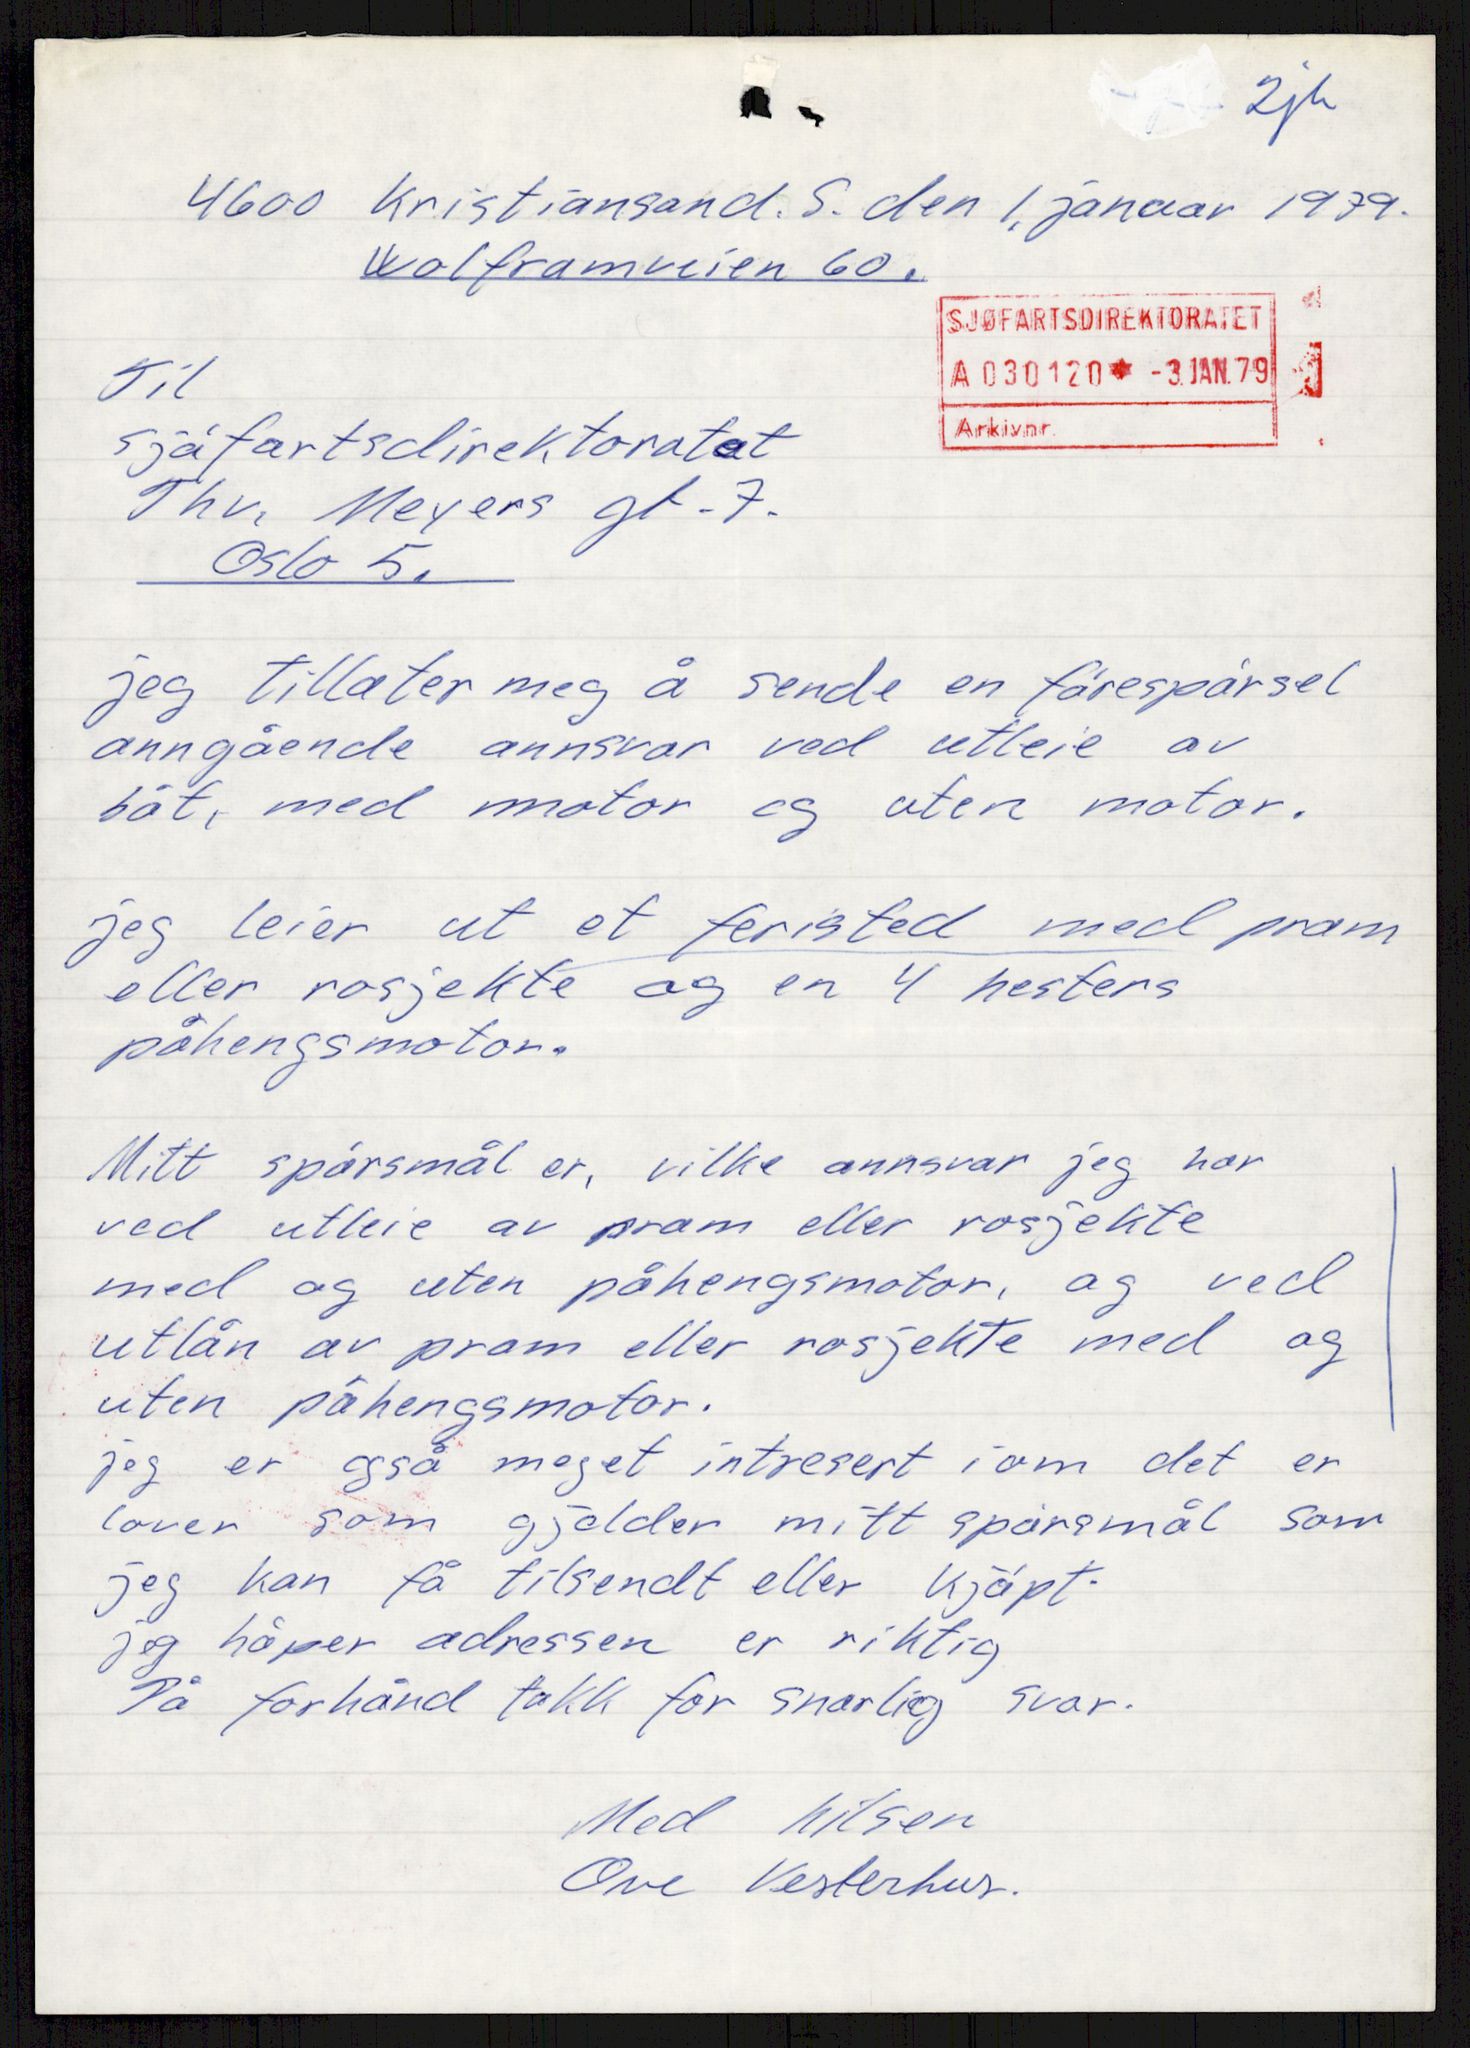 2jh
4600 Kristiansand. S. den 1, januar 1979.
Wolframveien 60.
SJØFARTSDIREKTORATET
A 030120* -3. JAN. 79
Arkivnr.
Til
sjøfartsdirektoratet
Thv, Meyers gt - 7.
Oslo 5.
jeg tillater meg å sende en førespørsel
anngående annsvar ved utleie av
båt, med motor og uten motor.
jeg leier ut et feristed med pram
eller rosjekte og en 4 hesters
påhengsmotor.
Mitt spørsmål er, vilke annsvar jeg har
ved utleie av pram eller rosjekte
med og uten påhengsmotor, og ved
utlån av pram eller rosjekte med og
uten påhengsmotor.
jeg er også meget intresert i om det er
lover som gjelder mitt spørsmål som
jeg kan få tilsendt eller kjøpt.
jeg håper adressen er riktig
På forhånd takk for snarlig svar.
Med hilsen
Ove Vesterhus.